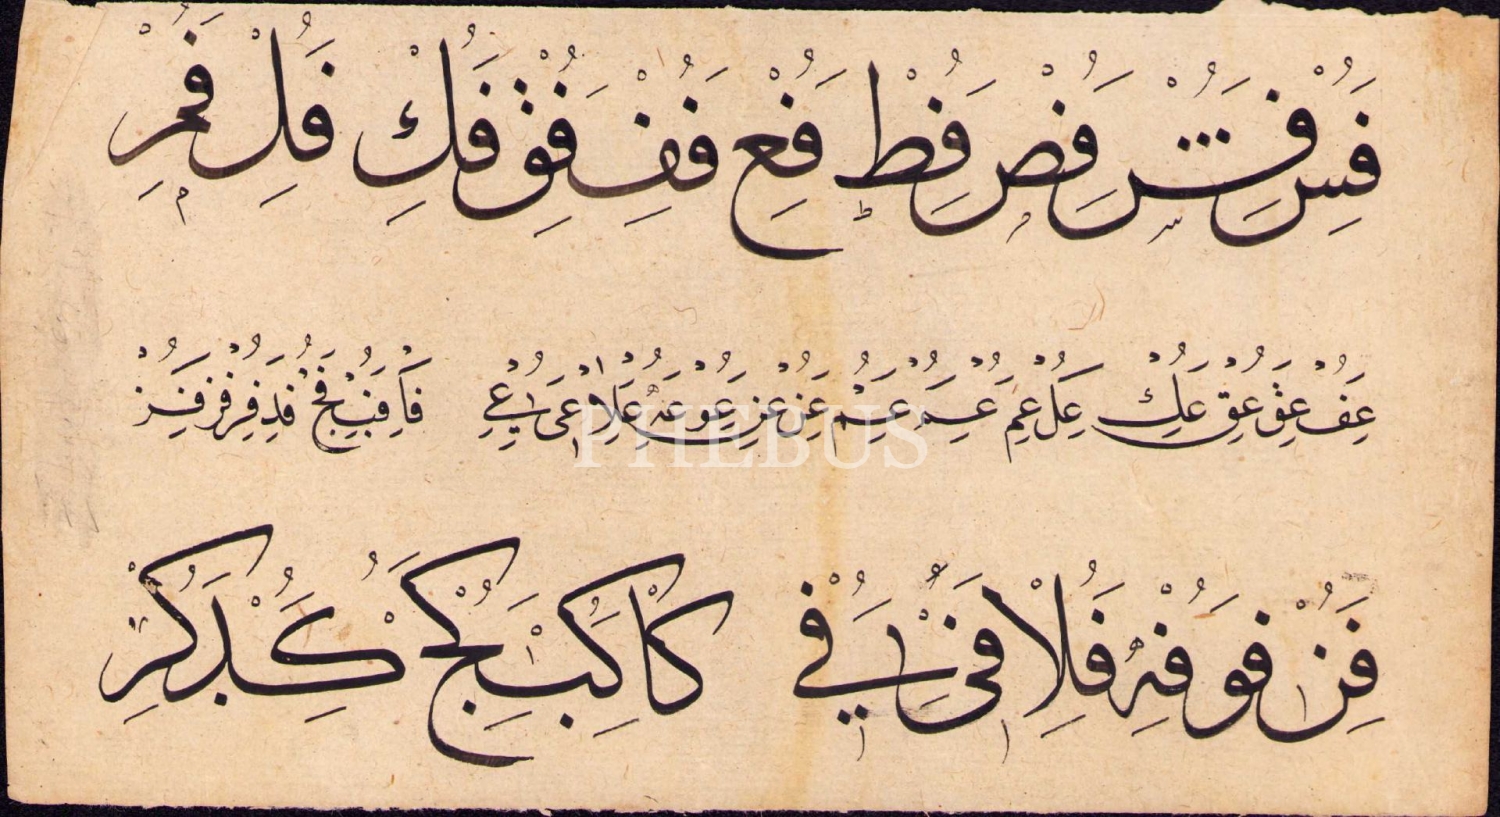 فس فش فص فط فع فف فق فك فل فم
عف عق عق عك عل عم عم عم عن عن عو عه علا عى عي فا فب فج فد فر فر
PHEBUS
فن فو فه فلا فى في كا كب كج كد كر